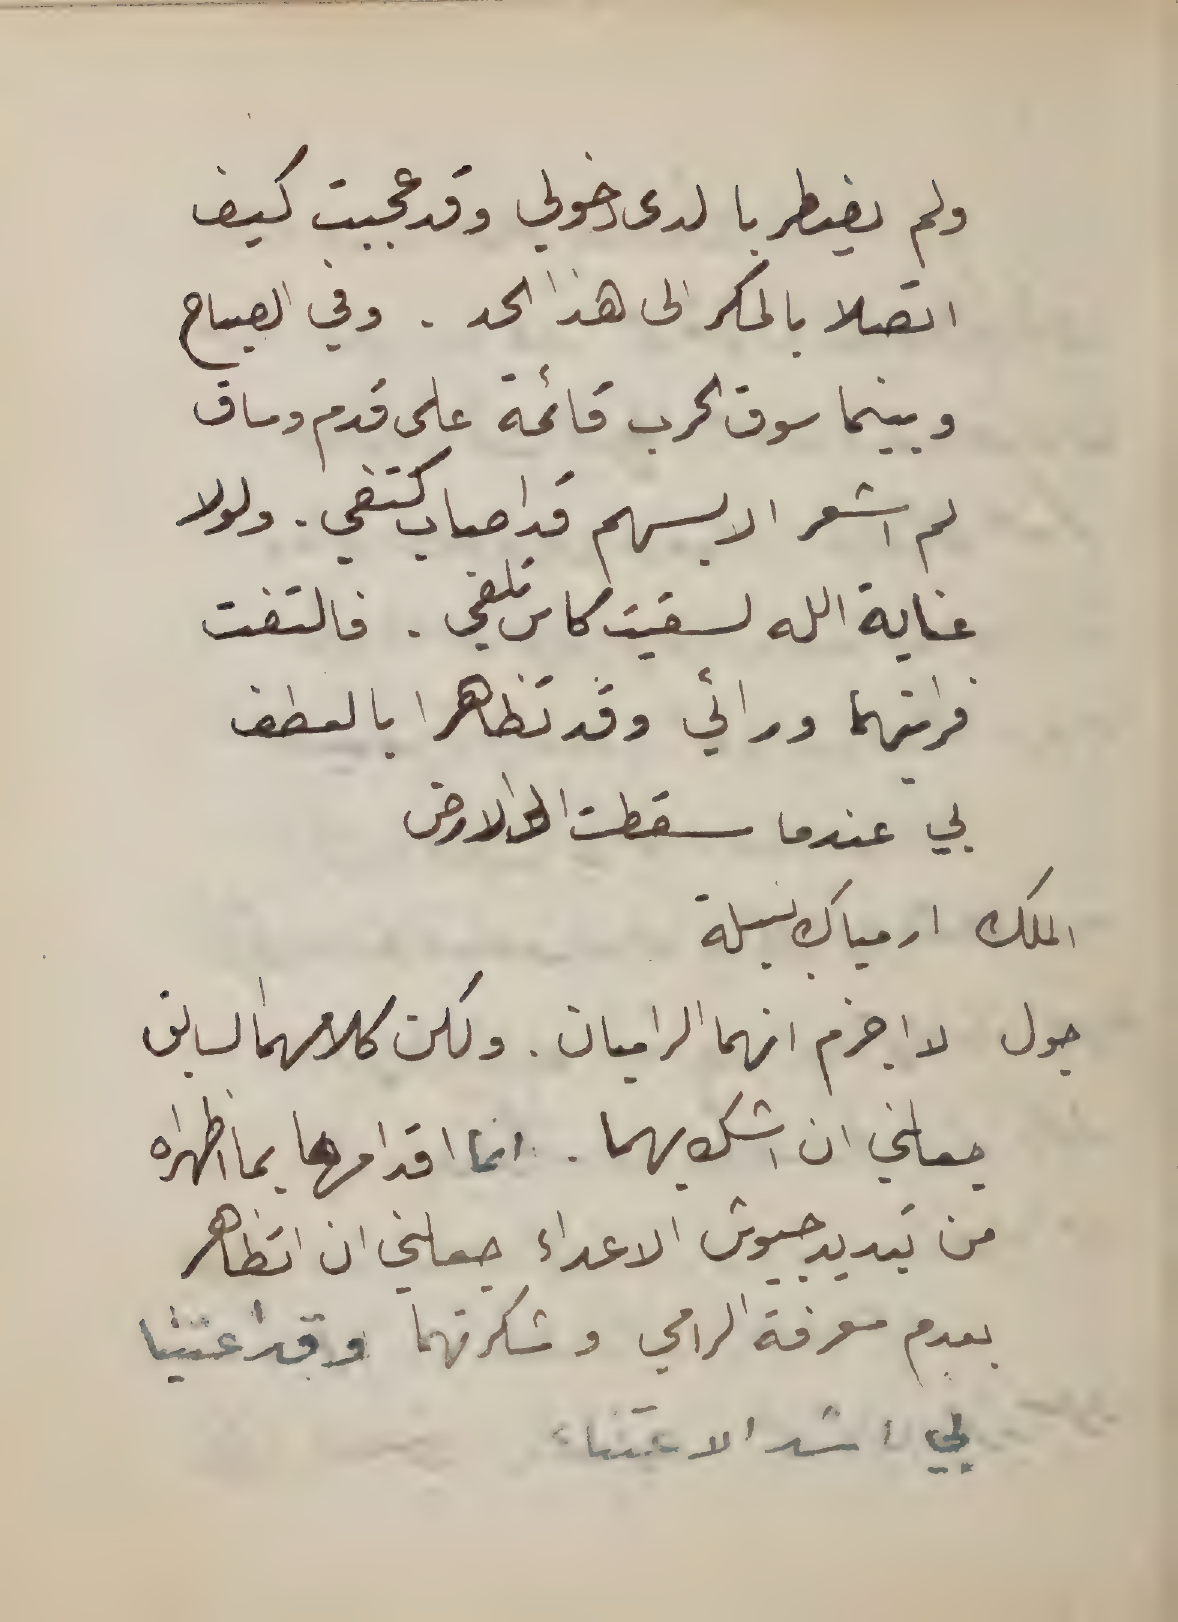 ولم يضطربا لدى دخولي وقد عجبت كيف
اتصلا بالمكر الى هذا الحد . وفي الصباح
وبينما سوق الحرب قائمة على قدم وساق
لم اشعر الا بسهم قد اصاب كتفي . ولولا
عناية الله لسقيت كاس تلفي . فالتفت
فرايتهما ورائي وقد تظاهرا بالعطف
بي عندما سقطت الى الارض
الملك ارمياك بسيلة
جول لا اجزم انهما الراميان . ولكن كلامهما السابق
جعلني ان اشك بهما . انما اقدامهما بما اظهراه
من تبديد جيوش الاعداء جعلني ان اتظاهر
بعدم معرفة الرامي وشكرتهما وقد اعتنيا
بي اشد الاعتناء